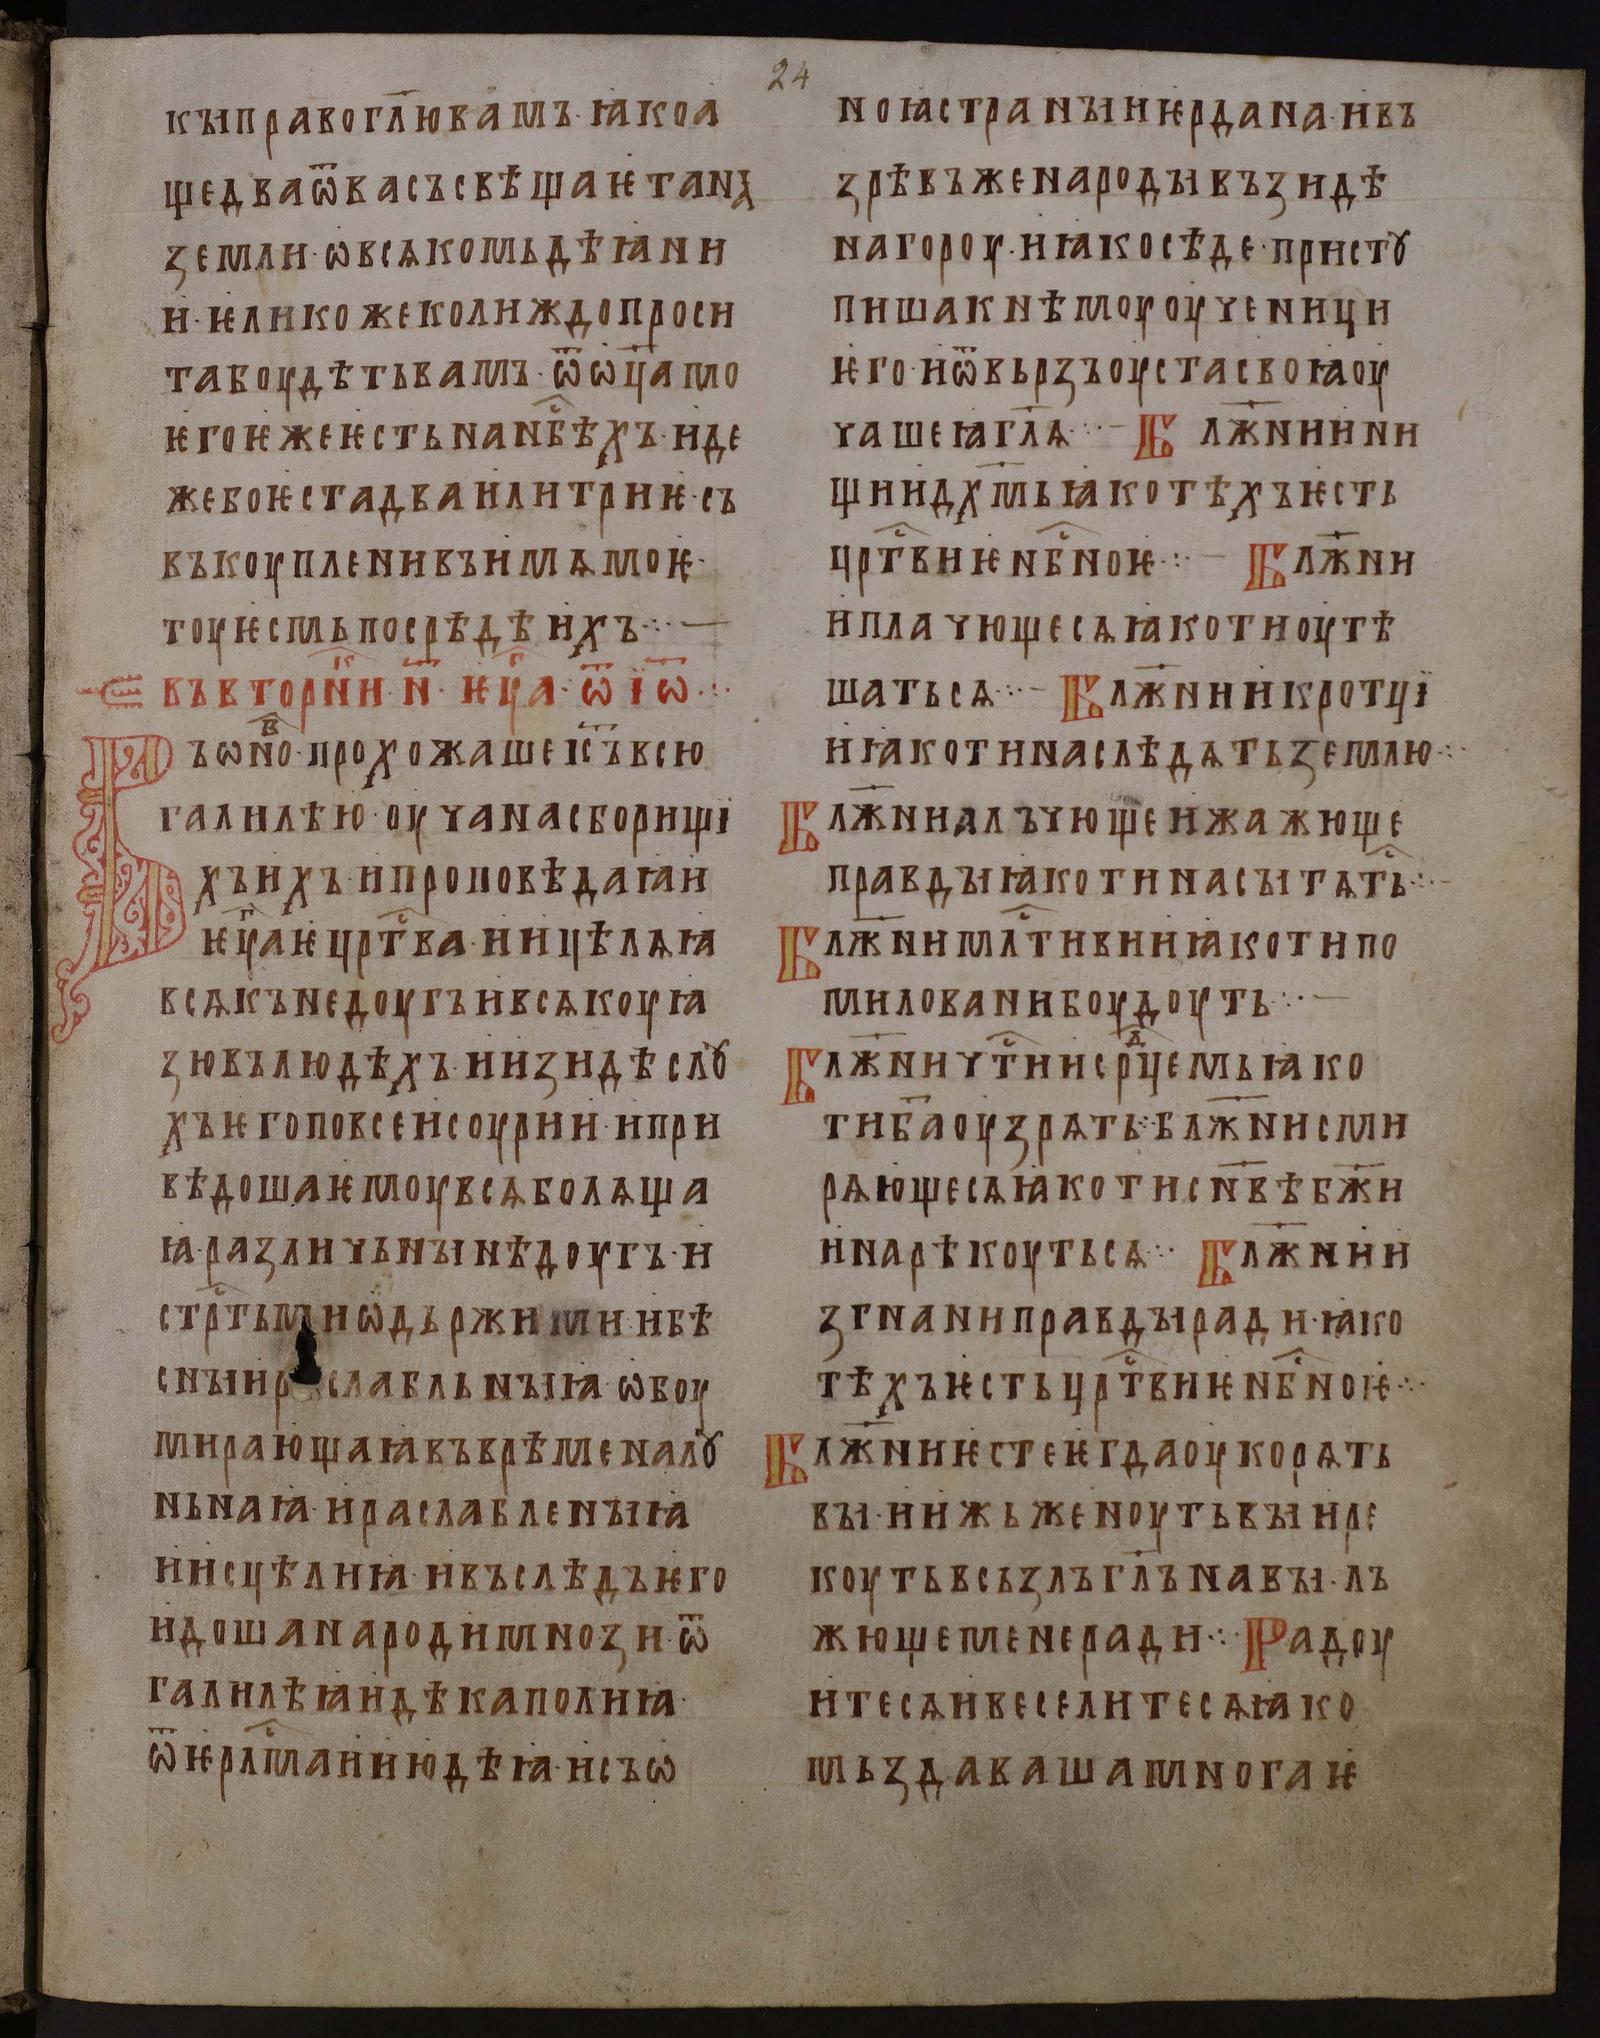 24
кꙑправоглю҃вамъ·ꙗкоа
щедваѿвасъсвѣщаѥтанꙗ
земли·ѡвсѧкомьдѣꙗни
и·ѥликожеколиждопроси
табоудѣтьвамъ·ѿѡц҃амо
ѥгоѥжеѥстьнанб҃ⷭ҇ѣхъ·иде
жебоѥстадваилитриѥ·съ
въкоуплениⷡъимѧмоѥ·
тоуѥсмьпосрѣдѣихъ⁘—
въвторⷦ҇нии·н҃·ѥⷢ҇ца·ѿїѡ҃⁘
Въѡⷡ҇но·прохожашеіс҃ъвсю
галилѣю·оучанасборищі
хъихъ·ипроповѣдаꙗи
ѥⷢ҇цаѥцртⷭ҇ва·иицѣлѧꙗ
всѧкънедоугъивсѧкоуꙗ
зювълюдѣхъ·иизидѣслꙋ
хъѥгоповсеисоурии·ипри
вѣдошаѥмоувсѧболѧща
ꙗ·различьнꙑнѣдоугъ·и
стртⷭ҇ьмиѡдьржими·ибѣ
снꙑир слабльнꙑꙗ·ѡбоу
мирающаꙗвъврѣменалꙋ
ньнаꙗ·ираслабленꙑꙗ
иисцѣлиꙗ·ивъслѣдъѥго
идошанародимнози·ѿ
галилѣꙗидѣкаполиꙗ·
ѿѥрлмⷭ҇аииюдѣꙗ·исъѡ
ноꙗстранꙑиѥрдана·ивъ
зрѣвъженародꙑвъзидѣ
нагороу·иꙗкосѣде·пристꙋ
пишакнѣмоуоученици
ѥго·иѿвьрзъоустасвоꙗоу
чашеꙗгл҃ѧ⁘—Блж҃нинии
щиидх҃мьꙗкотѣхъѥсть
цртⷭ҇виѥнбⷭ҇ноѥ⁘—Блж҃ни
иплачющесѧꙗкотиоутѣ
шатьсѧ⁘–Блж҃нииикротці
иꙗкотинаслѣдѧтьземлю⁘
Блж҃ниалъчющеижажюще
правдꙑꙗкотинасытѧтⷭ҇ь⁘–
Блж҃нимлтⷭ҇ивииꙗкотипо
милованибоудоуть⁘—
Блж҃ничтⷭ҇иисрⷣцемьꙗко
тиб҃аоузрѧть⁘блж҃нисми
рѧющесѧꙗкотисн҃вѣбж҃и
инарѣкоутьсѧ⁘Блж҃нии
згнаниправдꙑради·ꙗко
тѣхъѥстьцртⷭ҇виѥнбⷭ҇ноѥ⁘
Блж҃ниѥстеѥгдаоукорѧть
вꙑ·иижьженоутьвꙑире
коутьвсьзълъгл҃ънавꙑ·лъ
жющеменеради⁘Радоу
итесѧивеселитесѧꙗко
мьздавашамногаѥ